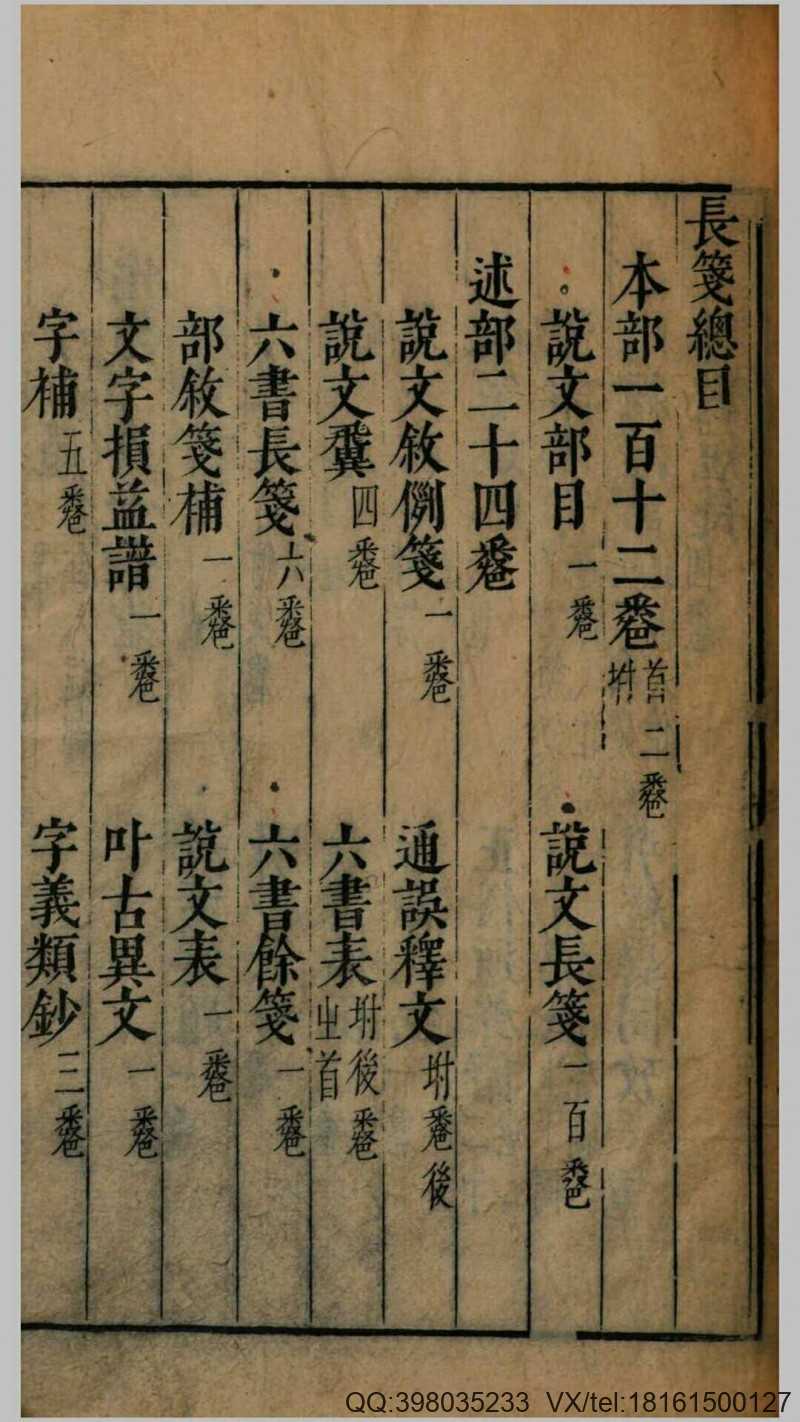 長箋總目
本部一百十二𢍏 首坿二𢍏
說文部目 一𢍏 說文長箋 一百𢍏
述部二十四𢍏
說文敘例箋 一𢍏 通誤釋文 坿𢍏後
說文 四𢍏 六書表 坿後𢍏之首
六書長箋 六𢍏 六書餘箋 一𢍏
部敘箋補 一𢍏 說文表 一𢍏
文字損益譜 一𢍏 叶古異文 一𢍏
字補 五𢍏 字義類鈔 三𢍏
QQ:398035233 VX/tel:18161500127